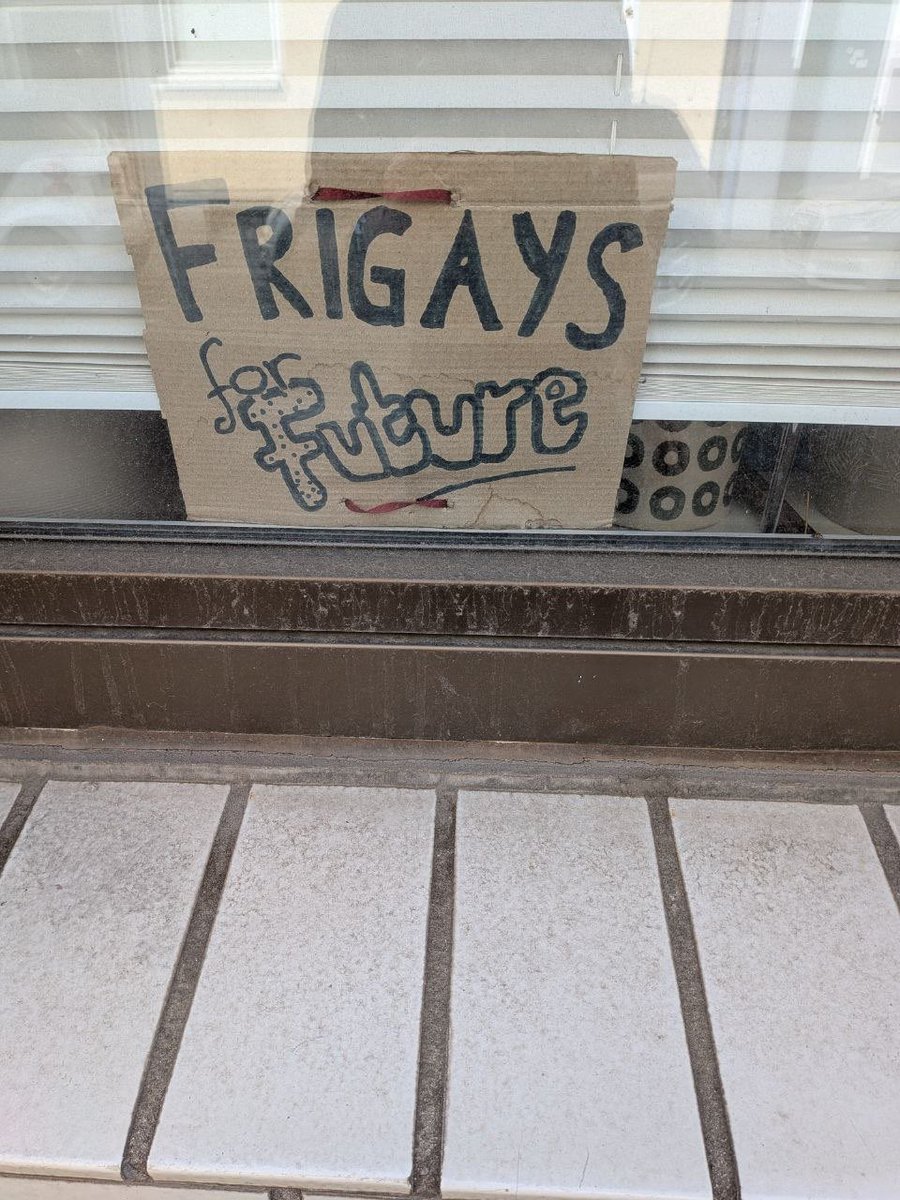 FRIGAYS
for
Future